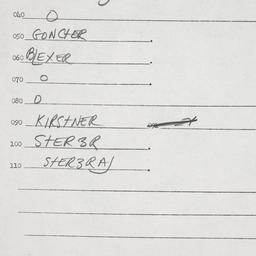 040 O
050 GONCTER
060 BLEXER
070 O
080 O
090 KIRSTNER
100 STER3R
110 STER3RA)